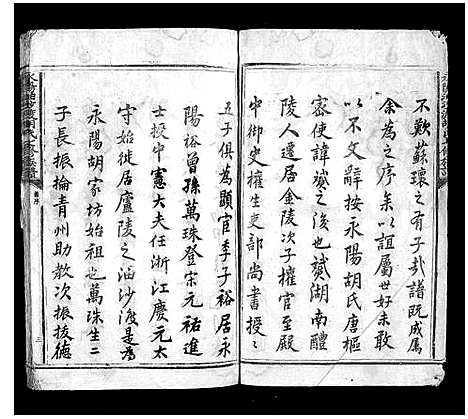 不歎蘇瓌之有子哉諸既成屬
余為之序余以誼屬世好未敢
以不文辭按永陽胡氏唐樞
密使諱贇之後也贇湖南醴
陵人遷居金陵次子權官至殿
中御史權生吏部尚書授授
五子俱為顯官季子裕居永
陽裕曾孫萬珠登宋元祐進
士授中憲大夫任浙江慶元太
守始徙居廬陵之油沙渡是為
永陽胡家坊始祖也萬珠生二
子長振掄青州助教次振拔德